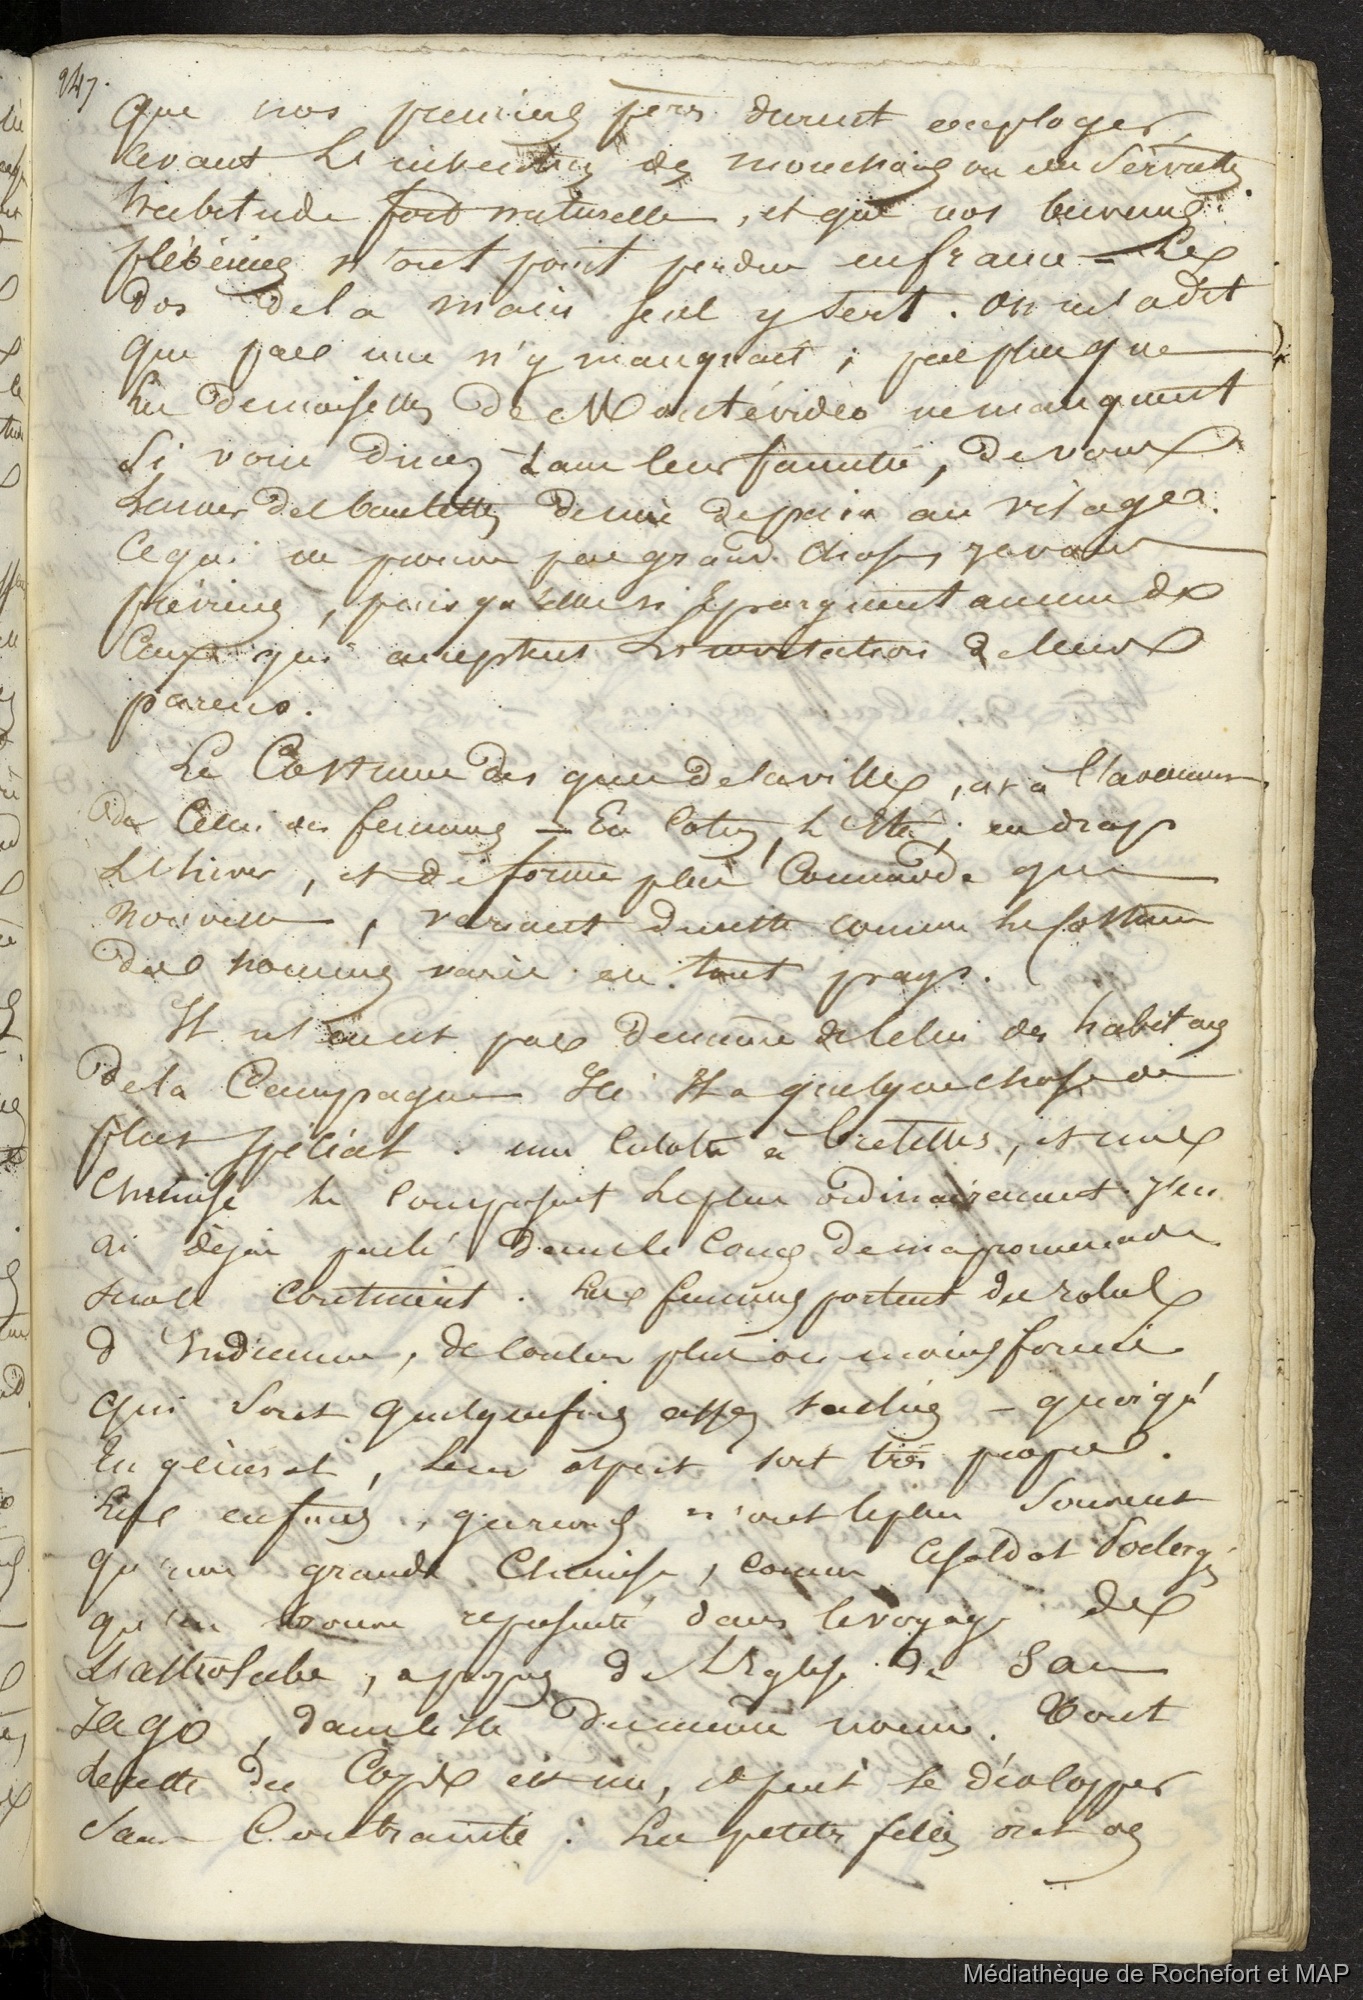 247.
que nos premiers pères durent employer,
avant l'invention des mouchoirs ou des serviettes
habitude fort naturelle, et que nos buveurs
plébéiens n'ont point perdue en france - Le
dos de la main seul y sert. On m'a dit
que pas une n'y manquait ; pas plus que
les demoiselles de Montévidéo ne manquent
si vous dinez dans leur famille, de vous
lancer des boulettes de mie de pain au visage.
Ce qui ne prouve pas grand chose en votre
, puisqu'elles n'épargnent aucun de
ceux qui acceptent l'invitation de leurs
parens.
Le Costume des gens de la ville, est à l'avenant
de celui des femmes - En coton, l'été ; en drap
l'hiver, et de forme plus commode que
nouvelle, variant du reste comme le costume
des hommes varie en tout pays.
Il n'en est pas de même de celui des habitans
de la Campagne Ici Il a quelque chose de
plus spécial. une culotte à bretelles, et une
chemise le composent le plus ordinairement. J'en
ai déja parlé dans le cours de ma promenade
sur le continent. Les femmes portent des robes
d'indienne, de couleur plus ou moins foncée
qui sont quelquefois assez - quoiqu'
en général, leur aspect soit très propre.
Les enfans, garçons n'ont le plus souvent
qu'une grande chemise, comme le soldat
qu'on trouve représenté dans le voyage de
L'astrolabe, apropos de l'Eglise de San
Iago, dans l'île du même nom. Tout
le reste du corps est nu, et peut se déveloper
sans contrainte : Les petites filles ont des
Médiathèque de Rochefort et MAP